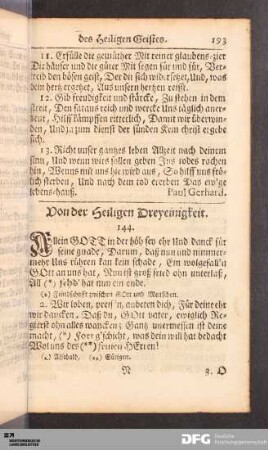 des Heiligen Geistes. 193
11. Erfülle die gemüther Mit reiner glaubens-zier
Die häuser und die güter Mit segen für und für, Ver-
treib den bösen geist, Der dir sich widersetzet, Und, was
dein hertz ergetzet, Aus unsern hertzen reist.
12. Gib freudigkeit und stärcke, Zu stehen in dem
streit, Den satans reich und wercke Uns täglich aner-
beut, Hilff kämpffen ritterlich, Damit wir überwin-
den, Und ja zum dienst der sünden Kein christ ergebe
sich.
13. Richt unser gantzes leben Allzeit nach deinem
sinn, Und wenn wirs sollen geben Ins todes rachen
hin, Wenns mit uns hie wird aus, So hilff uns frö-
lich sterben, Und nach dem tod ererben Das ew'ge
lebens-hauß. Paul Gerhard.
Von der Heiligen Dreyeinigkeit.
144.
Allein GOTT in der höh sey ehr Und danck für
seine gnade, Darum, daß nun und nimmer-
mehr Uns rühren kan kein schade, Ein wolgefall'n
GOtt an uns hat, Nun ist groß fried ohn unterlaß,
All (*) fehd' hat nun ein ende.
(*) Feindschafft zwischen GOtt und Menschen.
2. Wir loben, preis'n, anbeten dich, Für deine ehr
wir dancken, Daß du, GOtt vater, ewiglich Re-
gierst ohn alles wancken; Gantz unermessen ist deine
macht, (*) Fort g'schicht, was dein will hat bedacht
Wol uns des (**) feinen HErren!
(*) Alsbald, (**) Gütigen.
N 3. O